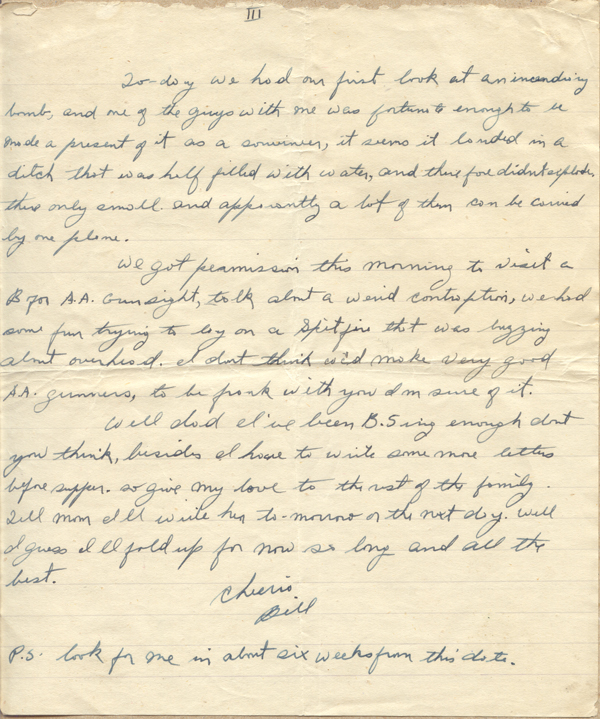 III
To-day we had our first look at an incendiary
bomb, and one of the guys with me was fortunate enough to be
made a present of it as a souvineer, it seems it landed in a
ditch that was half filled with water, and therefore didn't explode,
their only small. and apparently a lot of them can be carried
by one plane.
We got permission this morning to visit a
A.A. Gun sight, talk about a weird contraption, we had
some fun trying to lay on a Spitfire that was buzzing
about overhead. I don't think we'd make very good
A.A. gunners, to be frank with you I'm sure of it.
Well dad I've been B.S ing enough don't
you think, besides I have to write some more letters
before supper. so give my love to the rest of the family.
Tell mom I'll write her to-morrow or the next day. Well
I guess I'll fold up for now so long and all the
best.
Cheerio
Bill
P.S. look for me in about six weeks from this date.